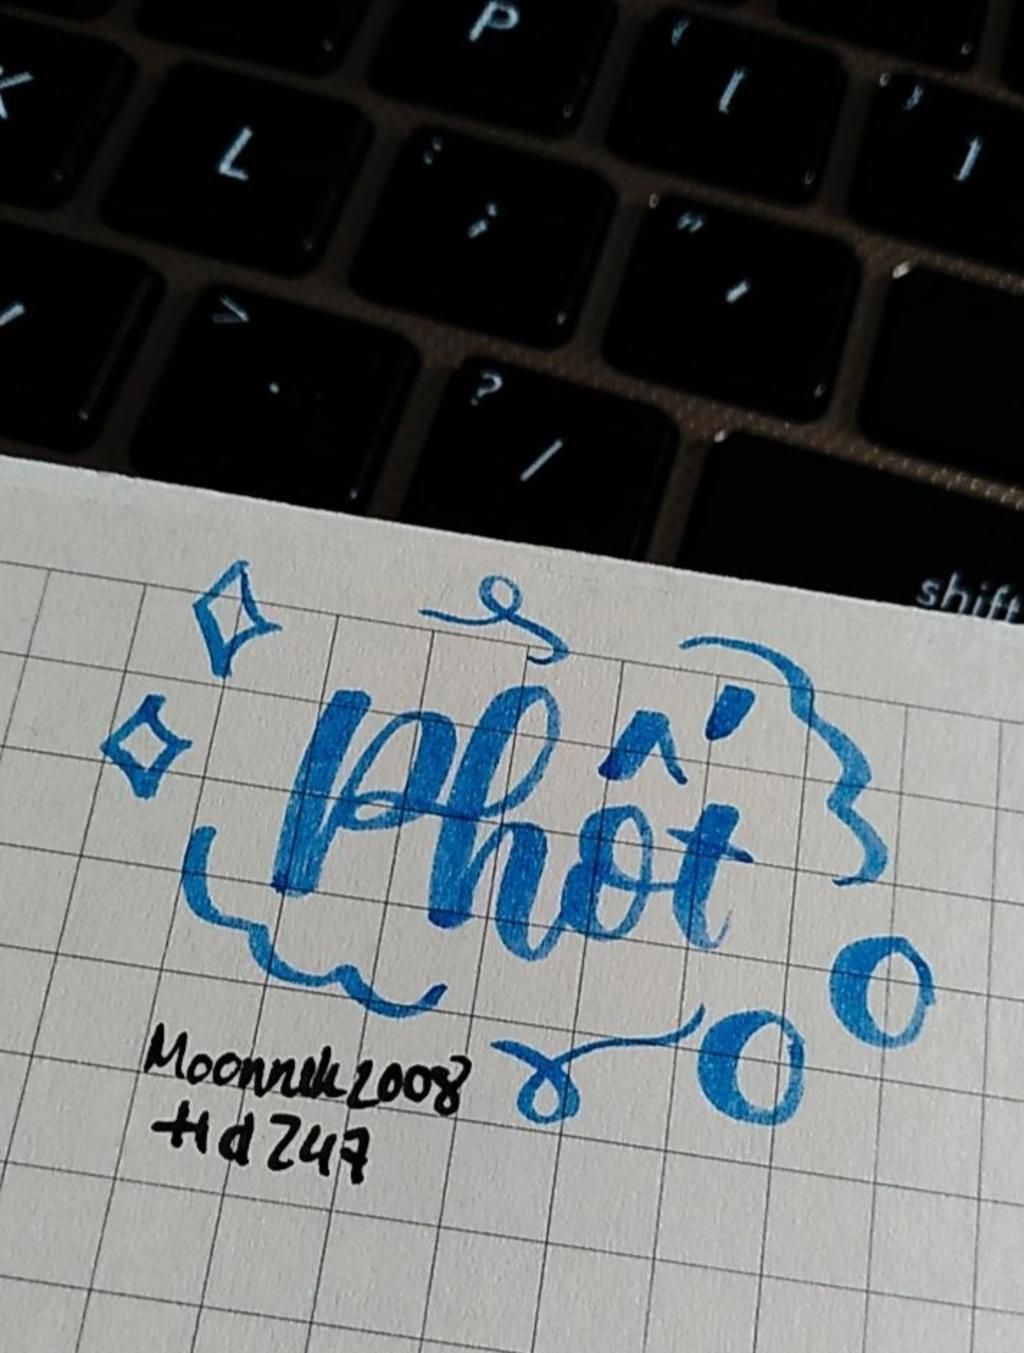 P
{ [
} ]
K
L
: ;
" '
>
.
? /
shift
Phốt
Moonnik2008
Hd247